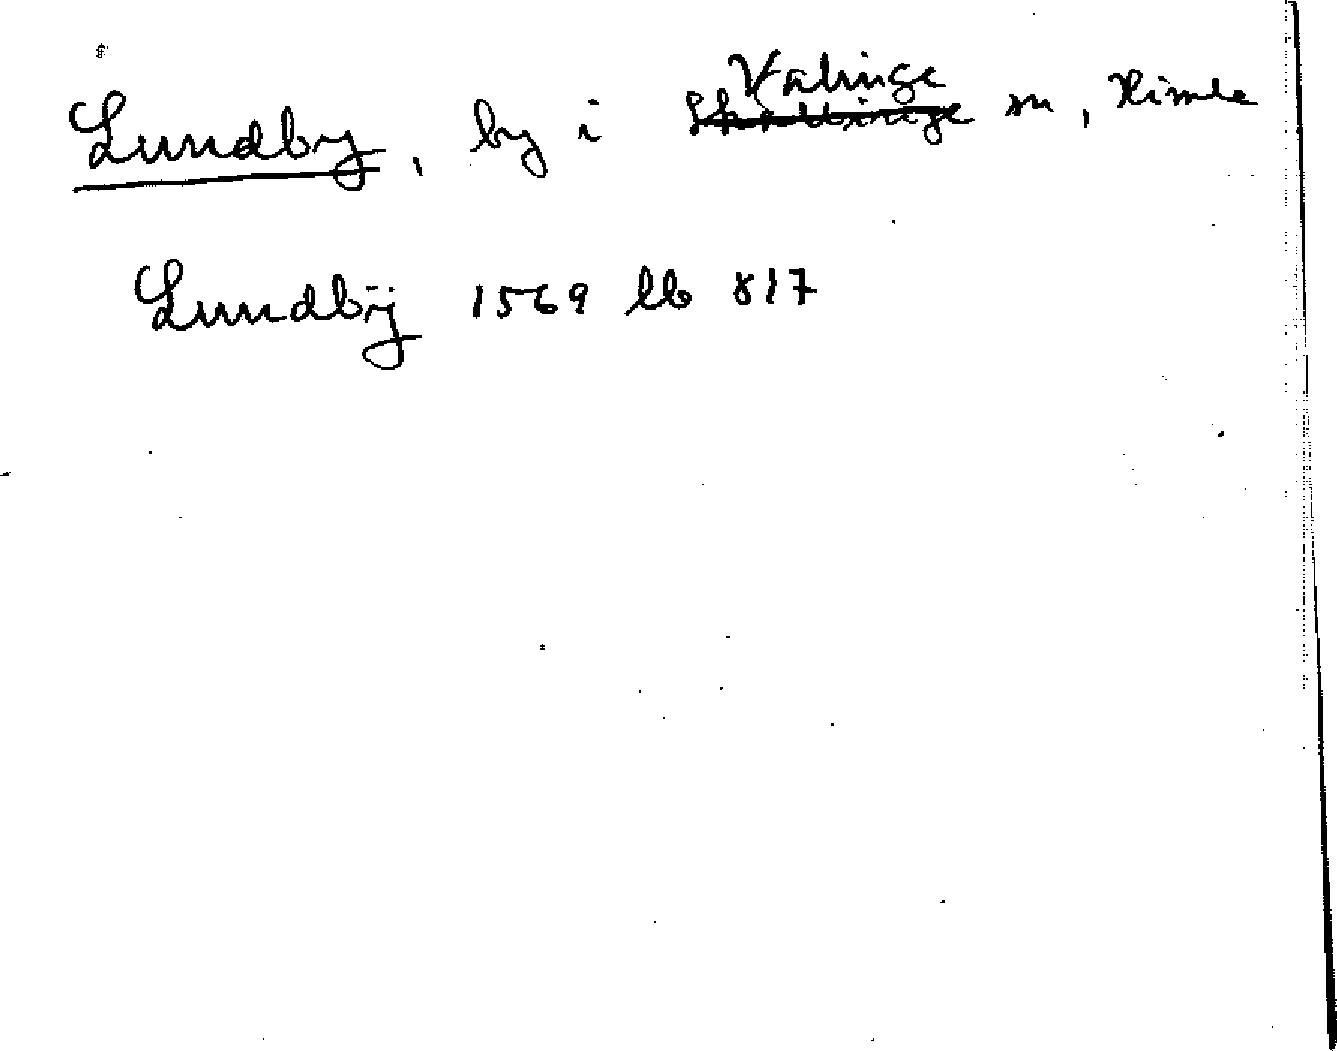 Lundby, by i Valinge sn, Himle
Lundbÿ 1569 lb 817